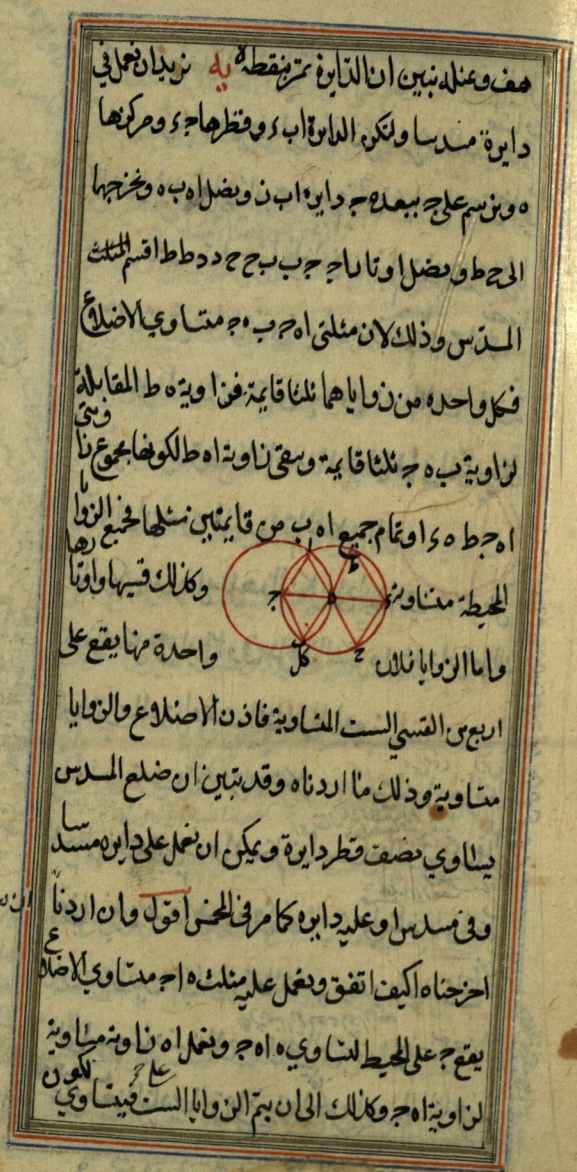 هف وبمثله نبين ان الدايرة تمر بنقطة ه يه نريد ان نعمل في
دايرة مسدسا ولتكن الدايرة ا ب ء وقطرها ج ء ومركزها
ه ونرسم على ج ببعد ه ج دايرة ا ب ن ونصل ا ه ب ه ونخرجهما
الى ح ط ونصل اوتار ا ج ج ب ب ح ح د د ط ط ا فهم
المسدس وذلك لان مثلثى ا ه ج ب ه ج متساوي الاضلاع
فكل واحده من زواياهما ثلثا قايمة فزاوية ه ط المقابلة
لزاوية ب ه ج ثلثا قايمة وتبقى زاوية ا ه ط لكونها مجموع زا
ا ه ج ط ه ء او تمام جميع ا ه ب من قايمتين مثلها فجميع الزوا
يا
المحيطة متساوية وكذلك قسيها واوتا
رها
واما الزوايا فلان واحدة منها يقع على
اربع من القسي الست المتساوية فاذن الاضلاع والزوايا
متساوية وذلك ما اردناه وقد تبين ان ضلع المسدس
يساوي نصف قطر دايرة ويمكن ان نعمل على دايره مسد
سا
وفى مسدس او عليه دايره كما مر فى المخمس اقول وان اردنا
اخرجنا ه ا كيف اتفق ونعمل عليه مثلث ه ا ج متساوي الاضلا
ع
يقع ج على المحيط لتساوي ه ا ه ج ونعمل ا ه زاوية متساوية
لزاوية ا ه ج وكذلك الى ان يتم الزوايا الست فيتساوي
لكون
ا
ط
ج
ه
ء
ح